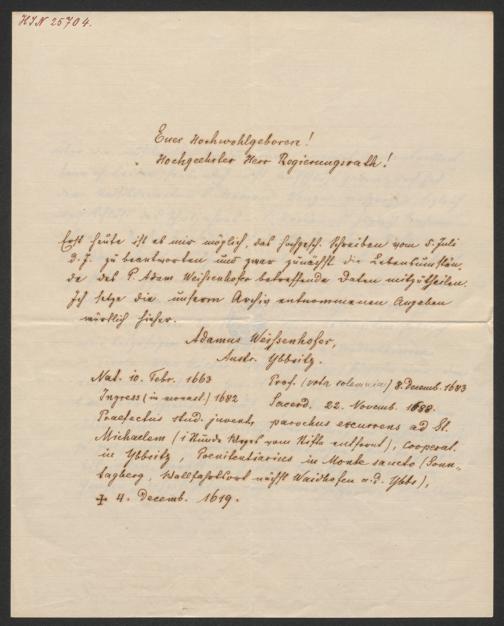 HIN 25704.
Euer Hochwohlgeboren!
Hochgeehrter Herr Regierungsrath!
Erst heute ist es mir möglich, das hochgesch. Schreiben vom 5. Juli
d. J. zu beantworten und zwar zunächst die Lebensumstän-
de des P. Adam Weißenhofer betreffende Daten mitzutheilen.
Ich setze die unserm Archiv entnommenen Angaben
wörtlich hieher.
Adamus Weissenhofer,
Austr. Ybbsitz.
Nat. 10. Febr. 1663 Prof. (vota solemnia) 8. Decemb. 1683
Ingress (in novast) 1682 Sacerd. 22. Novemb. 1688.
Praefectus stud. juvent., parochus excurrens ad St.
Michaelem (1 Stunde Wegs vom Stifte entfernt), Cooperat.
in Ybbsitz, Poenitentiarius in Monte sancto (Sonn-
tagberg, Wallfahrtsort nächst Waidhofen a. d. Ybbs),
‡ 4. Decemb. 1619.